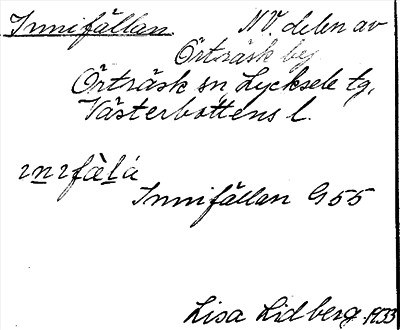 Innifällan. NV. delen av
Örträsk by
Örträsk sn, Lycksele tg,
Västerbottens l.
ınıfàlá
Innifällan G55
Lisa Lidberg. 1933